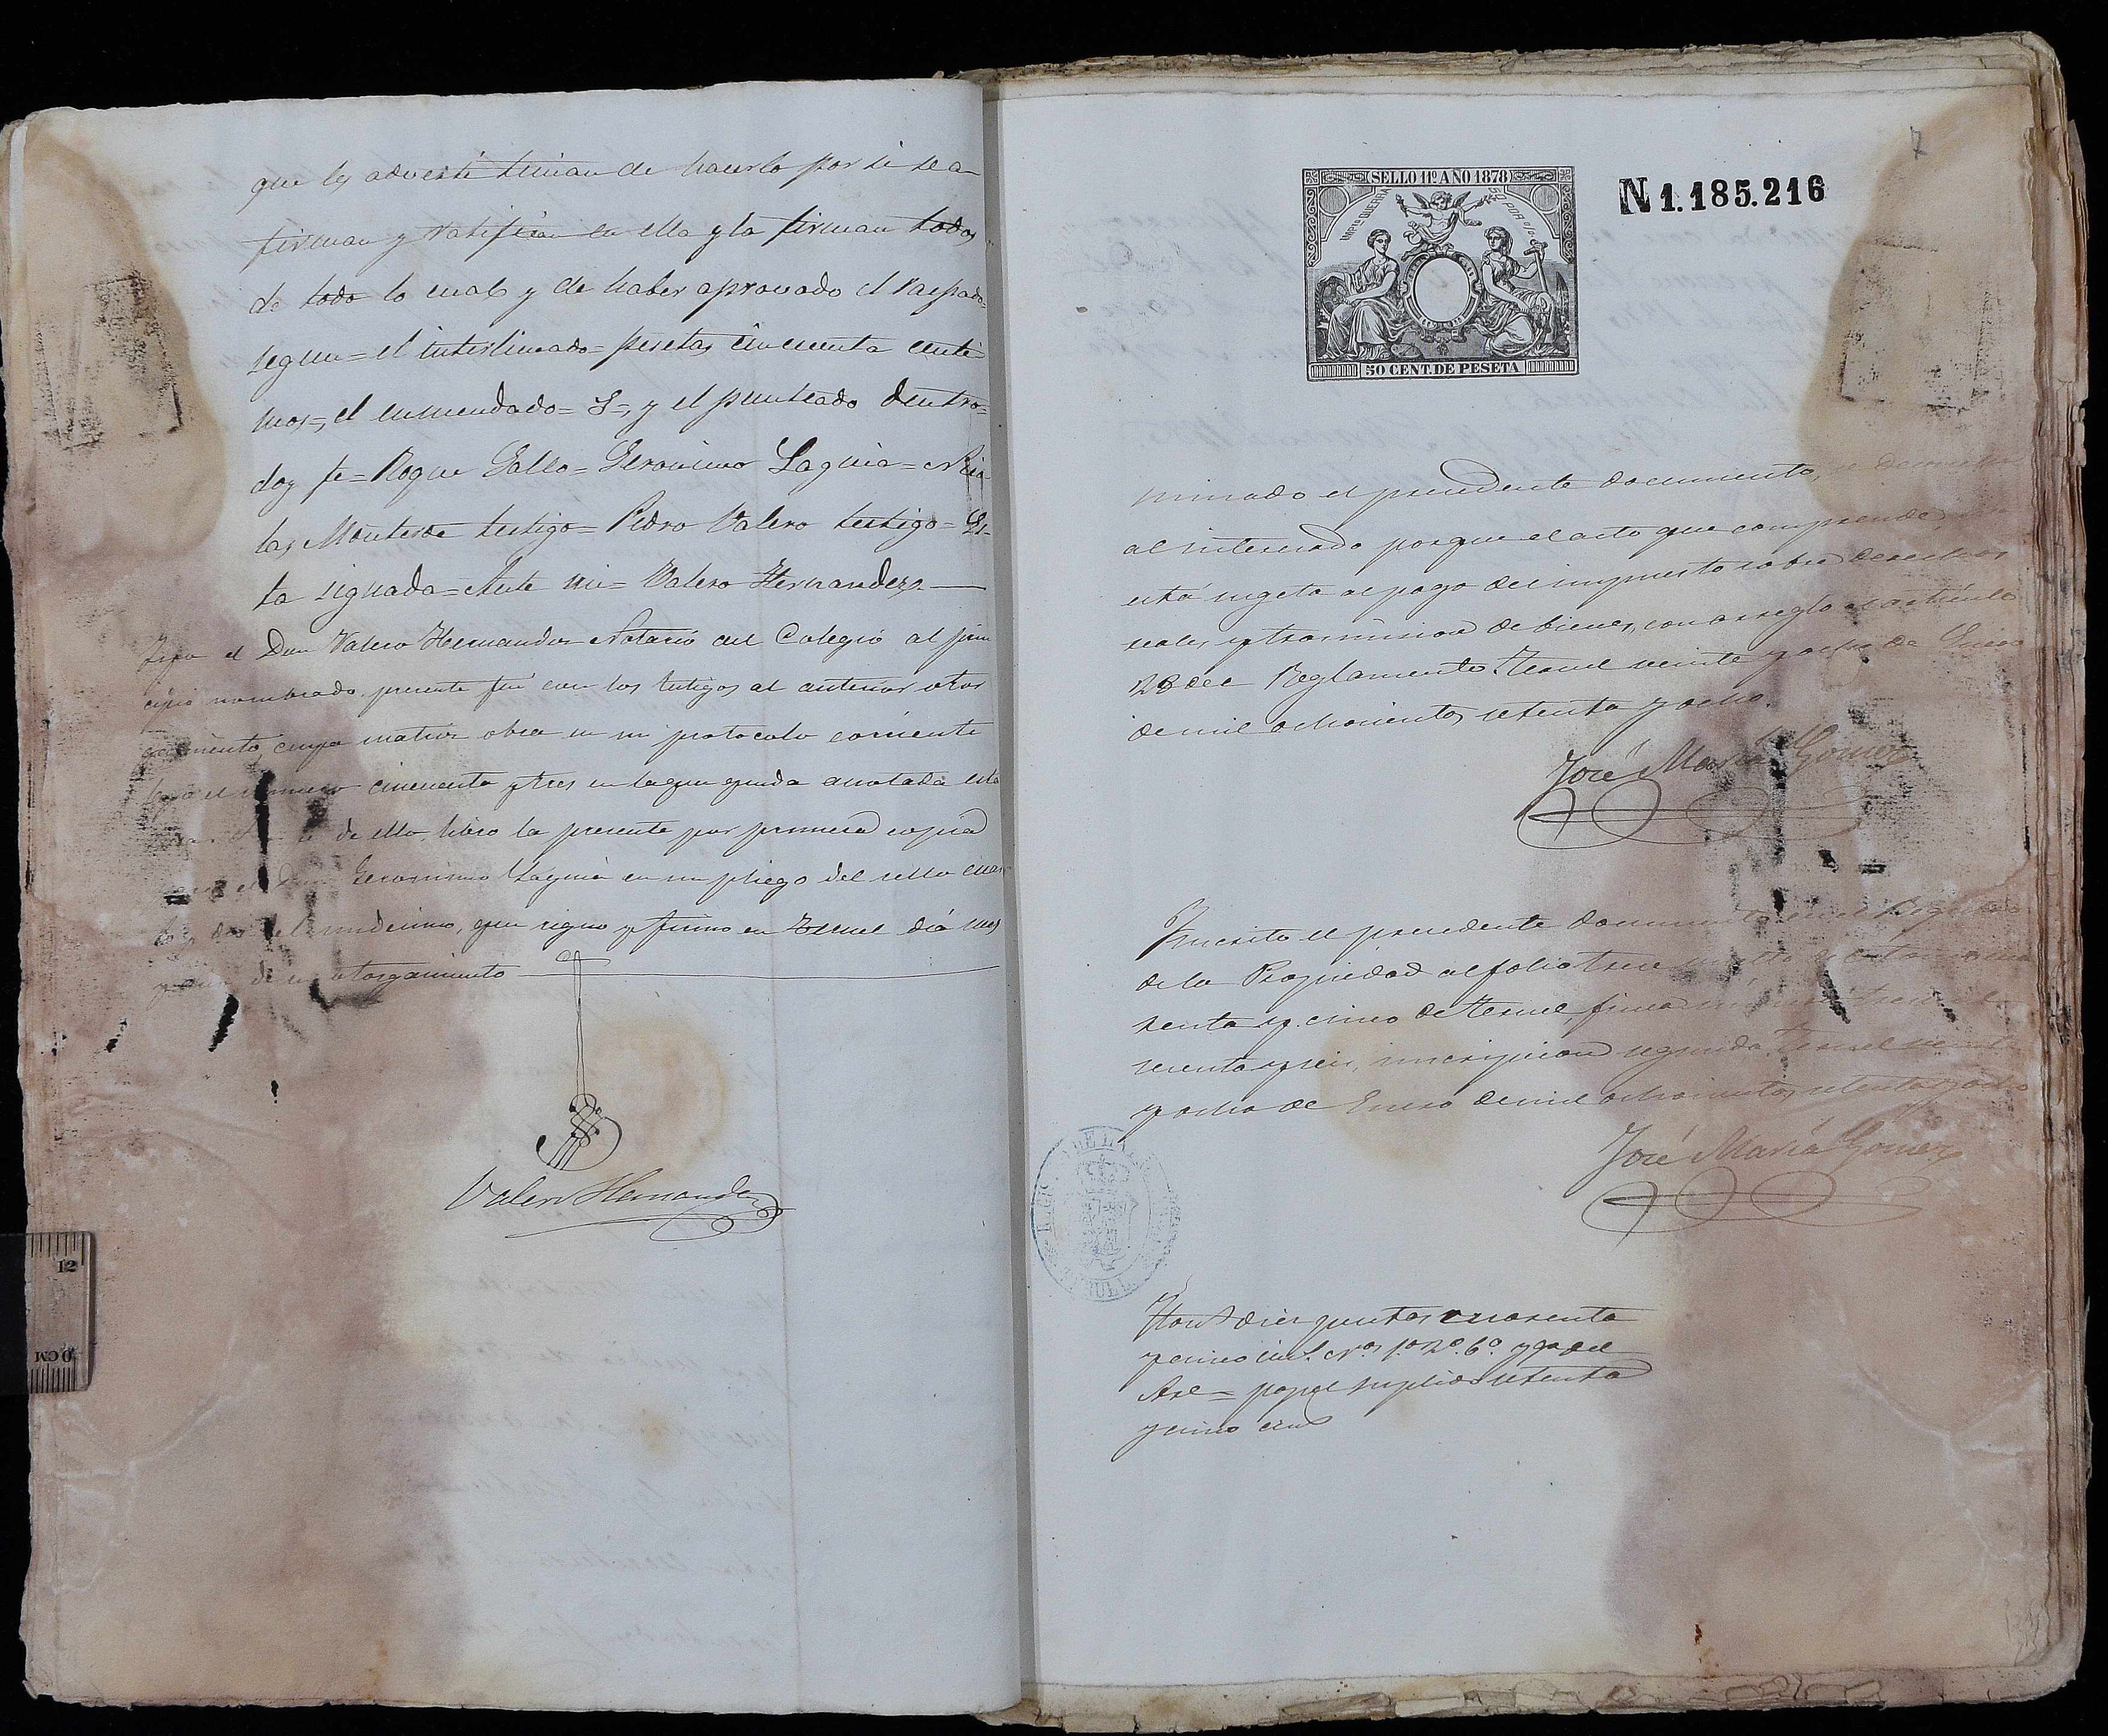 que les advertí tenian de hacerlo por sí se a-
firman y ratifican en ella y la firman todos
de todo lo cual y de haber aprovado el raspado=
segun=el interlineado=pesetas cincuenta centi
mos=, el enmendado= S=, y el punteado dentro=
doy fe=Roque Gallo=Geronimo Laguia=Nico
las Monterde testigo=Pedro Valero testigo=Es-
ta signada=Ante mi=Valero Hernandez
Don Valero Hernandez Notario del Colegio al prin
cipio nombrado presente fui con los testigos al anterior otor
gamiento, cuya matriz obra en mi protocolo corriente
bajo el numero cincuenta y tres en la que queda anotada esta
de ello, libro la presente por primera copia
Geronimo Laguia en un pliego del sello cuar
to y del undecimo, que signo y firmo en Teruel dia mes
y año de su otorgamiento
Valero Hernandez
7
SELLO 11º AÑO 1878
IMPtº GUERRA 50 POR o/o
50 CENT. DE PESETA
N 1.185.216
minado el precedente documento, se devuelve
al interesado porque el acto que comprende, no
está sugeto al pago del impuesto sobre derechos
reales y trasmision de bienes, con arreglo al artículo
28 del Reglamento. Teruel veinte y ocho de Enero
de mil ochocientos setenta y ocho.
José María Gomez
Inscrito el precedente documento en el Registro
de la Propiedad al folio trece
senta y cinco de Teruel, finca
cientos seis, inscripcion segunda. Teruel veinte
y ocho de Enero de mil ochocientos setenta y ocho
José María Gomez
Honos diez pesetas cuarenta
y cinco cents. nros 1º 2º 6º y 9º del
Arl= papel suplido setenta
y cinco cents